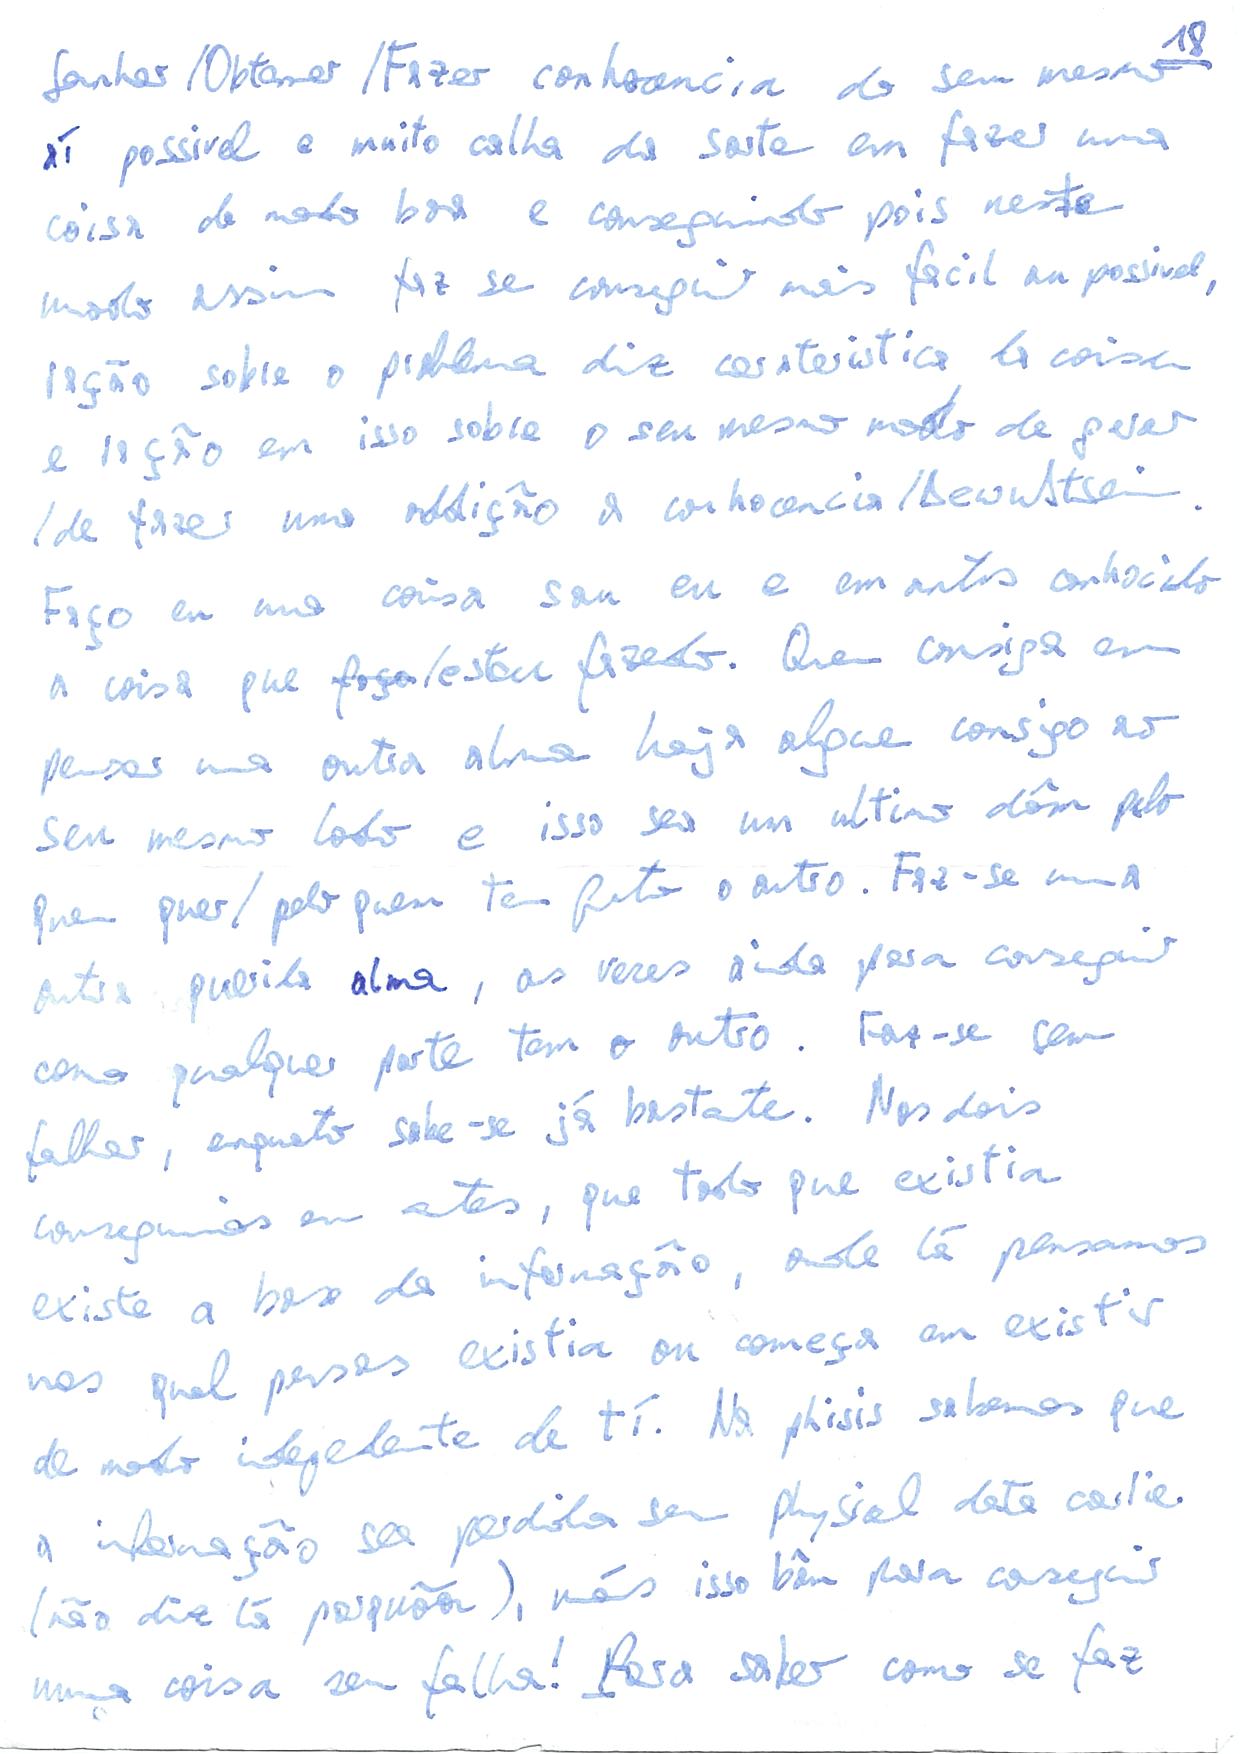 18
Ganhar /Obtemer /Fazer conhocencia do sem mesmo
aí possivel e muito calha da sorte em fazer uma
coisa de modo boa e conseguindo pois neste
modo assim faz se conseguir mais facil ou possivel,
lação sobre o problema diz caraterística la coisa
e lação em isso sobre o seu mesmo modo de gerar
/de fazer uma addição a conhocencia/Bewußtsein.
Faço eu uma coisa sou eu e em antes conhocido
a coisa que faço/estou fazedo. Quem consiga em
pensar uma outra alma haja algue consigo ao
seu mesmo lado e isso sea um ultimo dôm pelo
quem quer/ pelo quem tem feito o outro. Faz-se uma
outra querida alma, as vezes ainda para conseguir
como qualquer parte tem o outro. Faz-se sem
falhar, enquato sabe-se já bastate. Nos dois
conseguimos em ates, que todo que existia
existe a base da informação, onde lá pensamos
nos qual pensas existia ou começa em existir
de modo indepedente de tí. Na phisis sabemos que
a informação sea perdida sem physical data
(não diz lá porquõa), más isso bôm para conseguir
numa coisa sem falha! Para saber como se faz